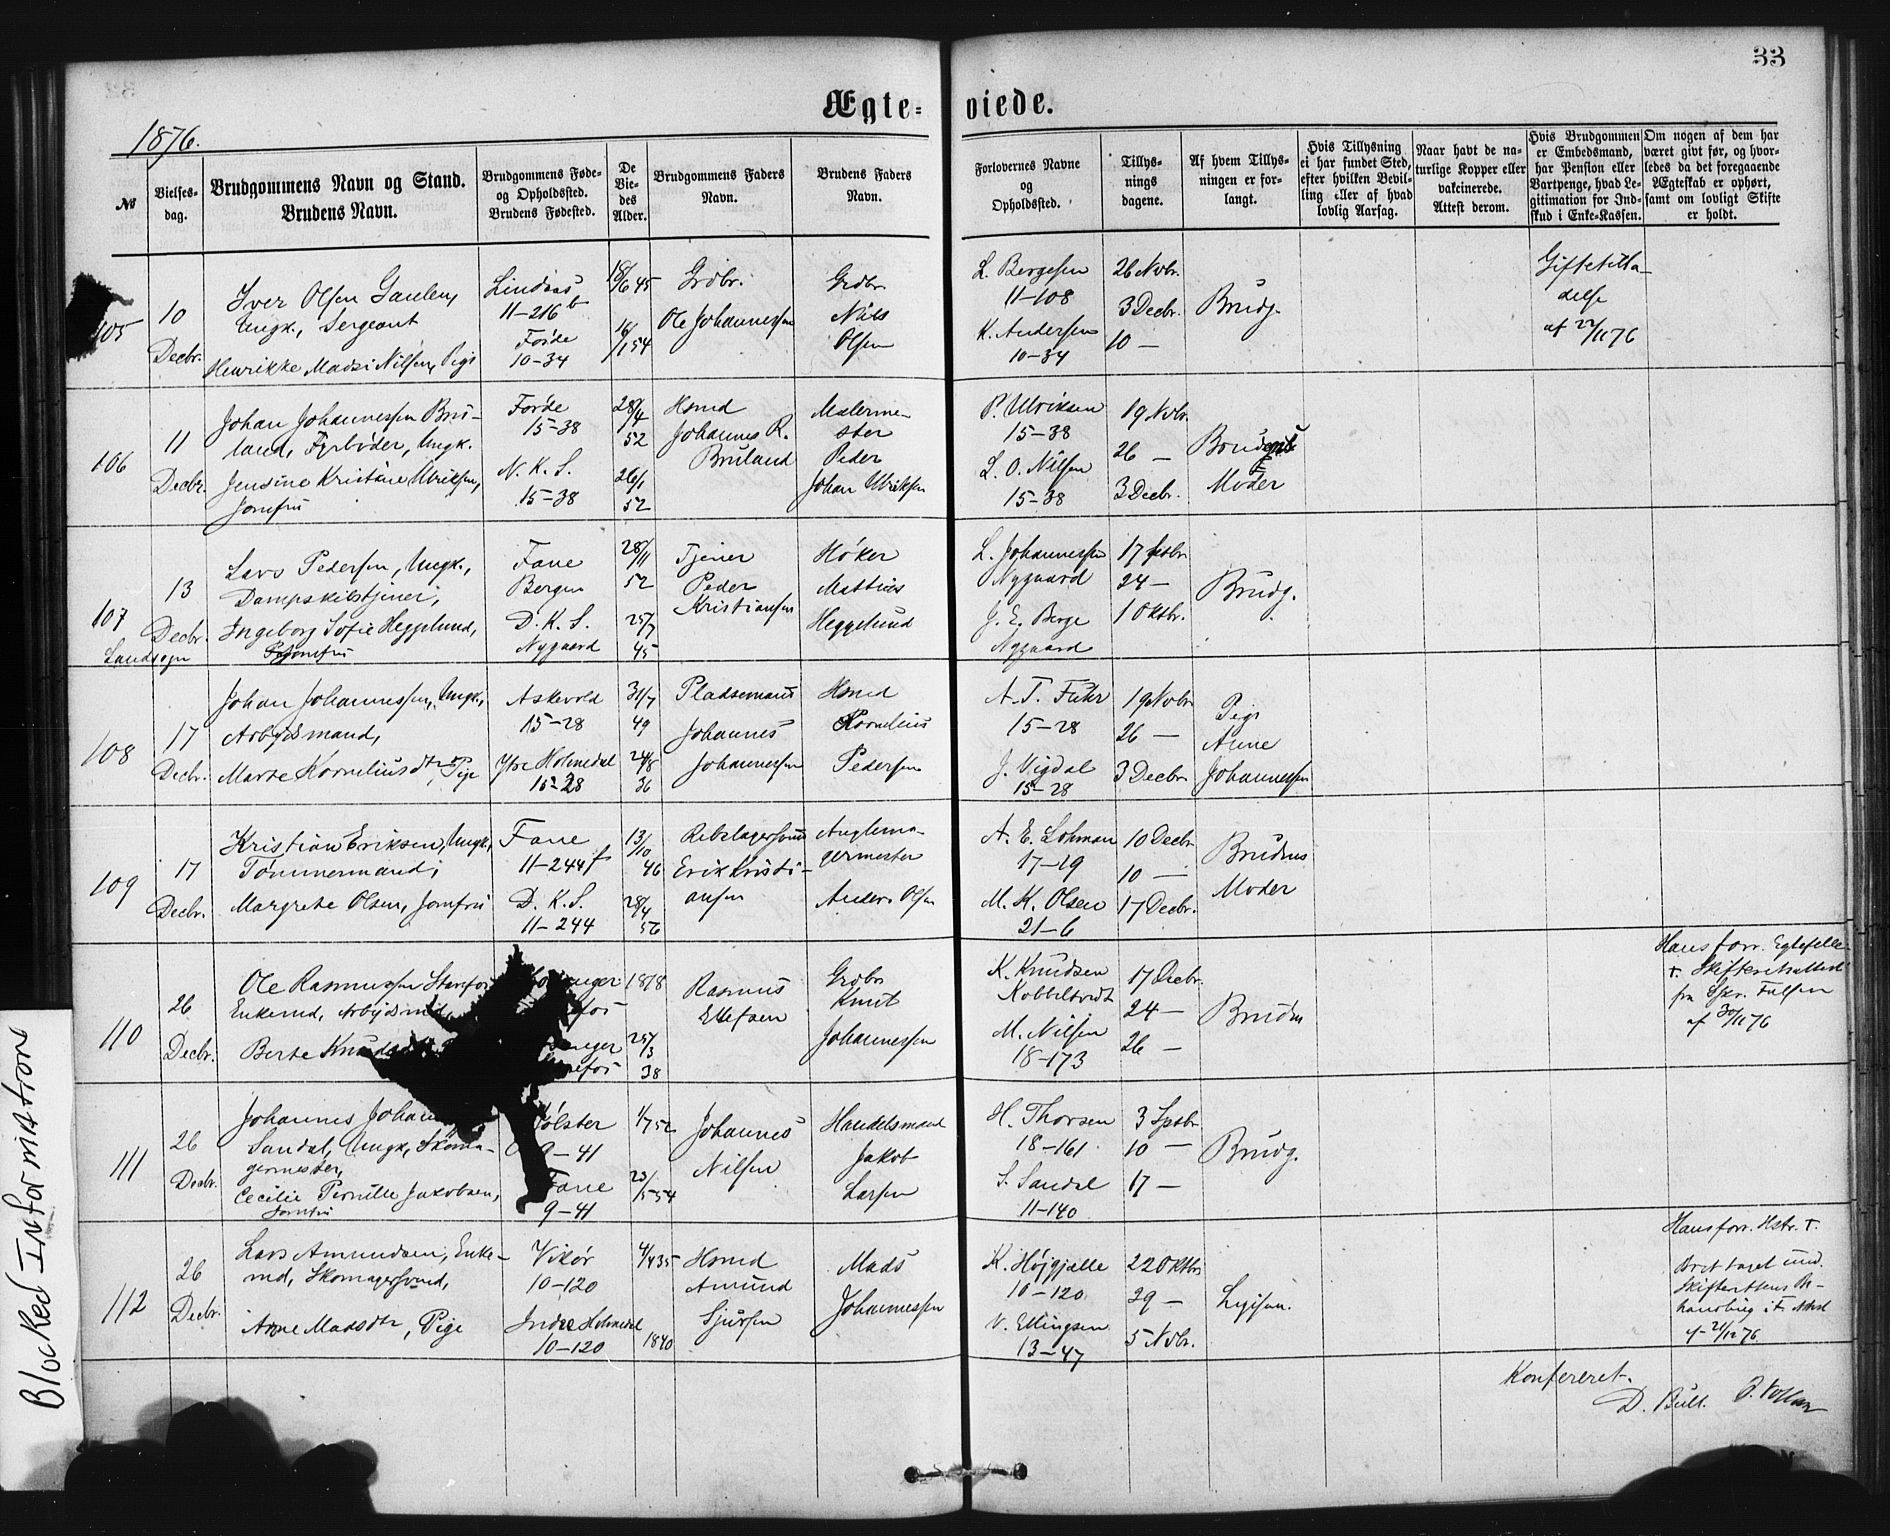 33
Ægteviede.
1876.
№
Vielses-
dag.
Brudgommens Navn og Stand.
Brudens Navn.
Brudgommens Føde-
og Opholdssted.
Brudens Fødested.
De
Vie-
des
Alder.
Brudgommens Faders
Navn.
Brudens Faders
Navn.
Forlovernes Navne
og
Opholdssted.
Tillys-
nings
dagene.
Af hvem Tillys-
ningen er for-
langt.
Hvis Tillysning
ei har fundet Sted,
efter hvilken Bevil-
ling eller af hvad
lovlig Aarsag.
Naar havt de na-
turlige Kopper eller
vakcinerede.
Attest derom.
Hvis Brudgommen
er Embedsmand,
har Pension eller
Vartpenge, hvad Le-
gitimation for Ind-
skud i Enke-Kassen.
Om nogen af dem har
været givt før, og hvor-
ledes da det foregaaende
Ægteskab er ophørt,
samt om lovligt Skifte
er holdt.
105
10
Decbr.
Iver Olsen
Ungk., Sergeant
Henrikke Madsi Nilsen, Pige
Lindaas
11-216 b
Førde
10-34
18/6 45
16/1 54
Grdbr.
Ole Johannessen
Grdbr
Nils
Olsen
L. Bergesen
11-108
K. Andersen
10-34
26 Nvbr.
3 Decbr.
10 —
Brudg.
Giftetilla-
delse
af 22/11 76
106
11
Decbr.
Johan Johannessen Bru-
land, Fyrbøder, Ungk.
Jensine Kristine Ulriksen,
Jomfru
Førde
15-38
N. K. S.
15-38
28/4
52
26/1
52
Hsmd
Johannes R.
Bruland
Malerme-
ster
Peder
Johan Ulriksen
P. Ulriksen
15-38
L. O. Nilsen
15-38
19 Nvbr.
26 —
3 Decbr.
Moder
107
Landsogn
13
Decbr.
Lars Pedersen, Ungk.,
Dampskibstjener,
Ingeborg Sofie Heggelund,
Jomfru
Fane
Bergen
D. K. S.
Nygaard
28/11
52
25/7
45
Tjener
Peder
Kristiansen
Høker
Mathias
Heggelund
L. Johannessen
Nygaard
J. E. Berge
Nygaard
17 Sptbr
24 —
1 Oktbr.
Brudg.
108
17
Decbr.
Johan Johannessen, Ungk.,
Arbejdsmand,
Marte Korneliusdtr, Pige
Askevold
15-28
Ytre Holmedal
15-28
31/7
49
24/8
36
Pladsemand
Johannes
Johannessen
Hsmd
Kornelius
Pedersen
A. T. Fuhr
15-28
J. Vigdal
15-28
19 Nvbr
26 —
3 Decbr
Pige
Anne
Johannessen
109
17
Decbr.
Kristian Eriksen, Ungk.,
Tømmermand,
Margrete Olsen, Jomfru
Fane
11-244 f
D. K. S.
11-244
13/10
46
28/4
56
Rebslagersvend
Erik Kristi-
ansen
germester
Anders Olsen
A. E. Lohman
17-19
M. K. Olsen
21-6
10 Decbr
10 —
17 Decbr.
Brudens
Moder
110
26
Decbr.
Ole Rasmussen
Enkemd, Arbejdsmd,
Berte
1818
25/3
38
Rasmus
Ellefsen
Grdbr
Knut
Johannessen
K. Knudsen
Kobbeltvedt
M. Nilsen
18-173
17 Decbr.
24 —
26 —
Bruden
Hans forr. Egtefelle
†. Skifteretsattest
fra Spr. Falsen
af 30/11 76
111
26
Decbr.
Johannes
Sandal, Ungk., Skoma-
germester,
Cecilie Pernille Jakobsen,
Jomfru
Jølster
9-41
Fane
9-41
1/7 52
23/5 54
Johannes
Nilsen
Handelsmand
Jakob
Larsen
H. Thorsen
18-161
S. Sandal
11-140
3 Sptbr
10 —
17 —
Brudg.
112
26
Decbr.
Lars Amundsen, Enke-
md, Skomagersvend,
Anne Madsdtr, Pige
Vikør
10-120
Indre Holmedal
10-120
4/4 35
1840
Hsmd
Amund
Sjursen
Mads
Johannessen
K. Højgjelle
10-120
V. Ellingsen
13-47
22 Oktbr
29 —
5 Nvbr.
Hans forr. Hstr. †.
Skifterettens Be-
handling
21/12 76
Konfereret.
D. Bull.
Blocked Information